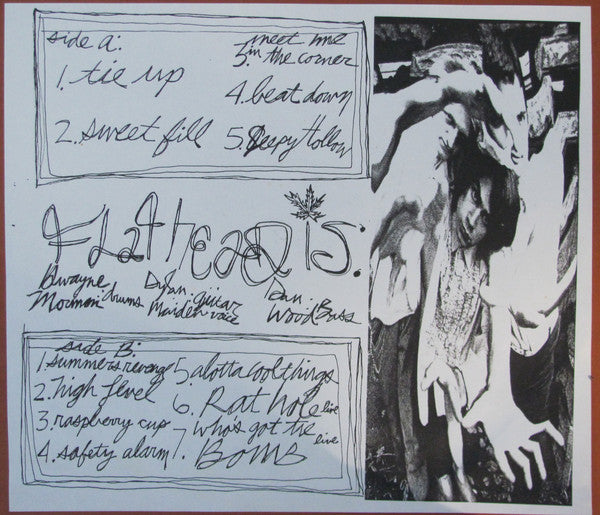 side a:
1. tie up
2. sweet fill
3. meet me
in the corner
4. beat down
5. Sleepy Hollow
FLatheaD is:
Dwayne
Mormon drums
Dylan: guitar
Maiden voice
Dan:
Wood Bass
side B:
1. summers revenge
2. high level
3. raspberry cup
4. safety alarm
5. alotta cool things
6. Rat hole live
7. who's got the live
Bomb